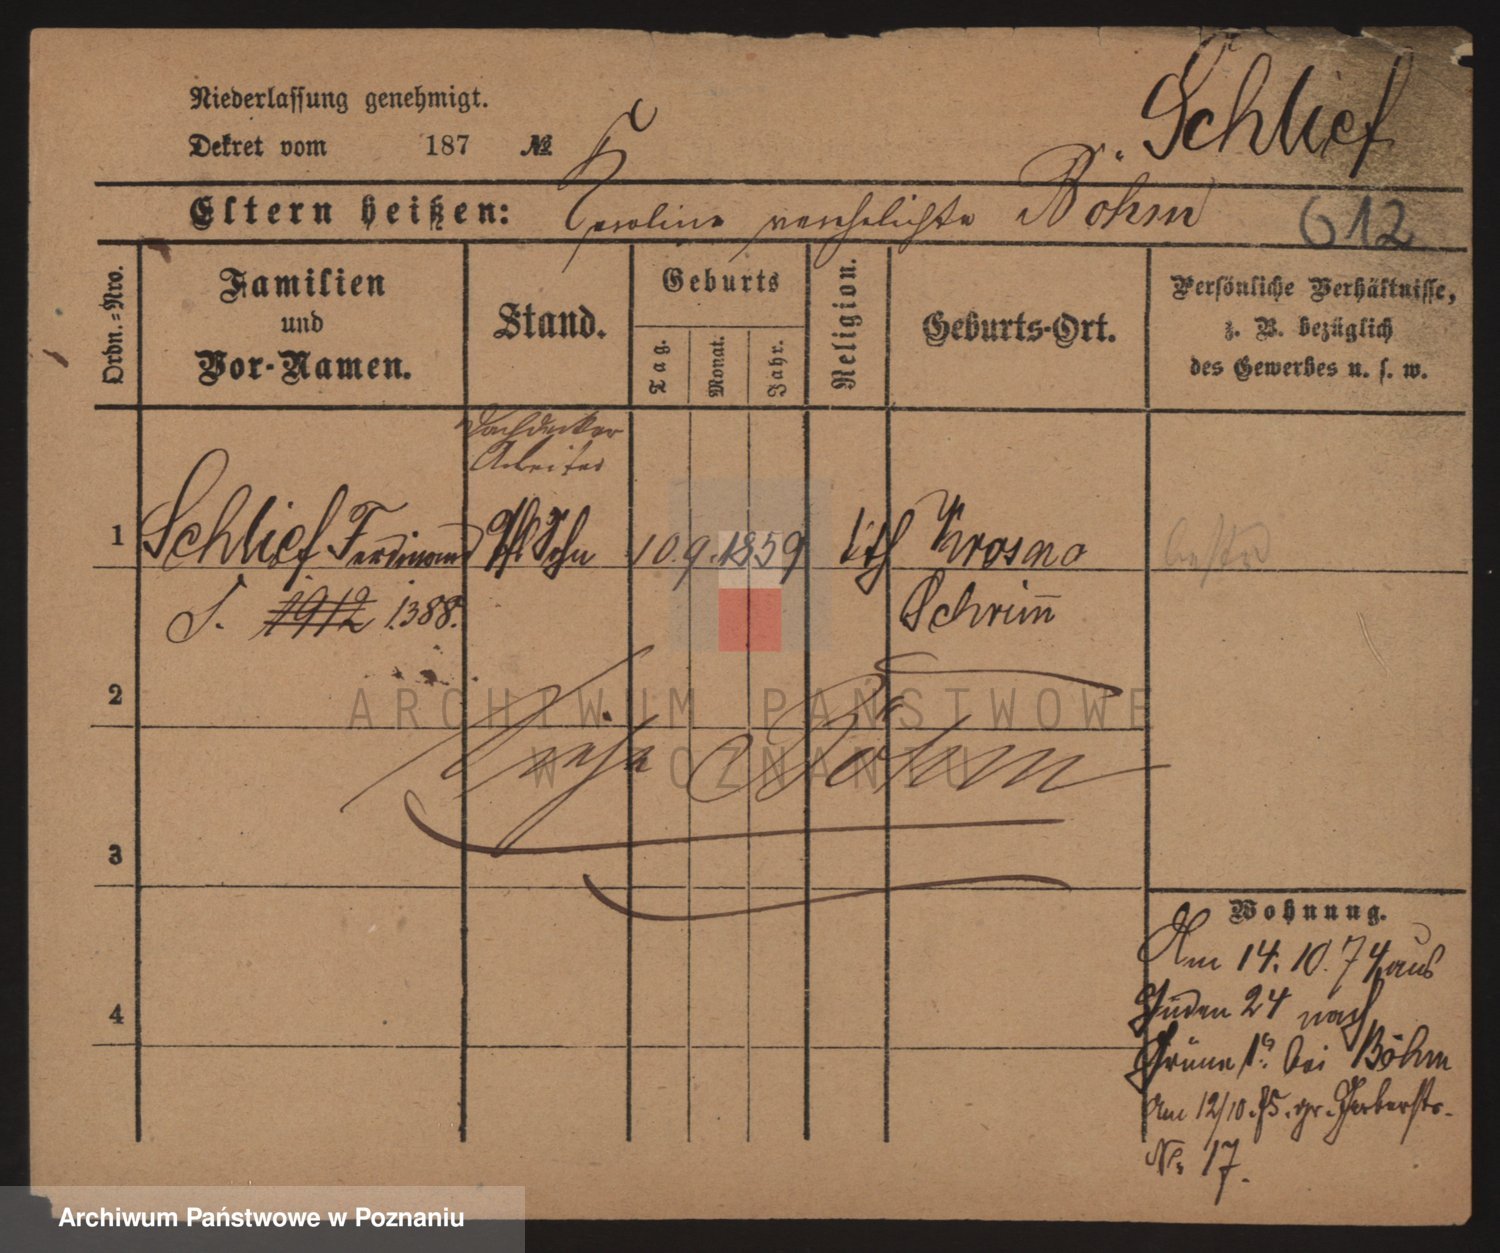 Schlief
Niederlassung genehmigt.
Dekret vom 187 №
Eltern heißen: Karoline verehelichte Böhm
612
Ordn.-Nro.
Familien
und
Vor-Namen.
Stand.
Geburts
Tag.
Monat.
Jahr.
Religion.
Geburts-Ort.
Persönliche Verhältnisse,
z. B. bezüglich
des Gewerbes u. s. w.
Dachdecker
Arbeiter
1 Schlief Ferdinand Pfl. Sohn 10. 9. 1859 Krosno
S. 1912 1388.
Schrim̄
2
Siehe Böhm
3
4
Wohnung.
Am 14. 10. 74 aus
Juden 24 nach
Grüne 1 bei Böhm
Am 12/10. 75. gr. Gerberstr.
No. 17.
ARCHIWUM PAŃSTWOWE
W POZNANIU
Archiwum Państwowe w Poznaniu